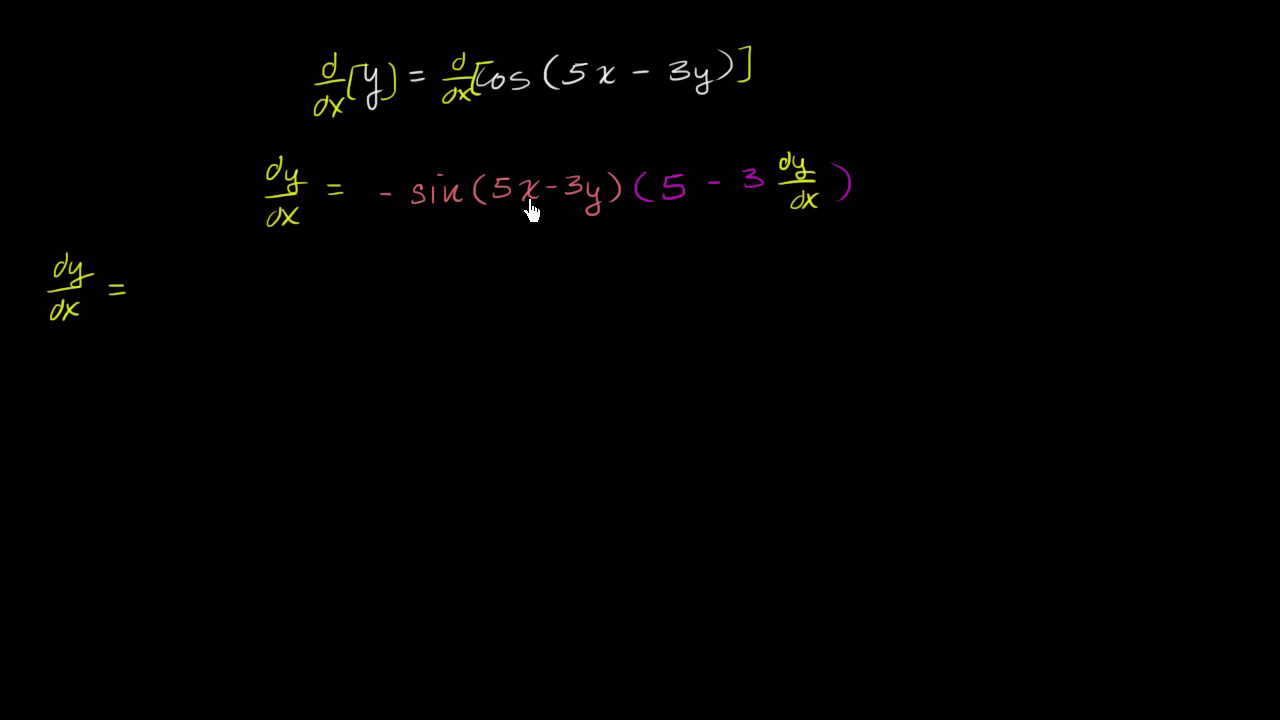 d/dx[y] = d/dx[cos(5x - 3y)]
dy/dx = - sin(5x-3y)(5 - 3 dy/dx)
dy/dx =